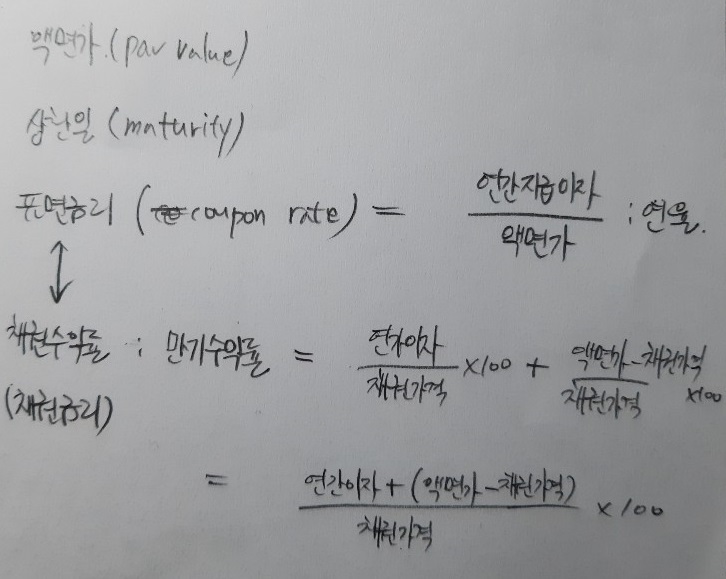 액면가 (par value)
상환일 (maturity)
표면금리 (coupon rate) = 연간지급이자 / 액면가 ; 연율.
↕
채권수익률 ; 만기수익률 = 연간이자 / 채권가격 ×100 + 액면가-채권가격 / 채권가격 ×100
(채권금리)
= 연간이자 + (액면가-채권가격) / 채권가격 ×100